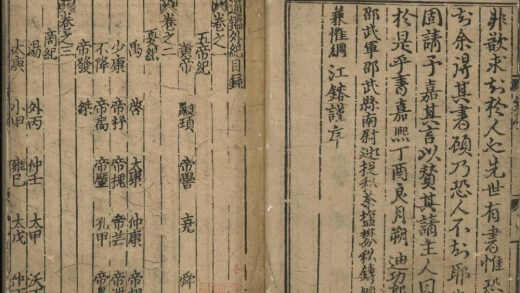 非欲求知於人也先世有書惟恐
知余得其書顧乃恐人不知耶
固請予嘉其言以贊其請主人曰
於是乎書嘉熙丁酉良月朔 迪功郎
邵武軍邵武縣南尉巡捉私茶鹽礬私鑄銅
兼催綱 江鎔謹序
通鑑外紀目錄
卷之一
五帝紀
黃帝 顓頊 帝嚳 堯 舜
卷之二
夏紀
禹 啓 太康 仲康 帝相
少康 帝杼 帝槐 帝芒
不降 帝扃 帝廑 孔甲
帝發 桀
卷之三
商紀
湯 外丙 仲壬 太甲 沃
太庚 小甲 雍巳 太戊 仲